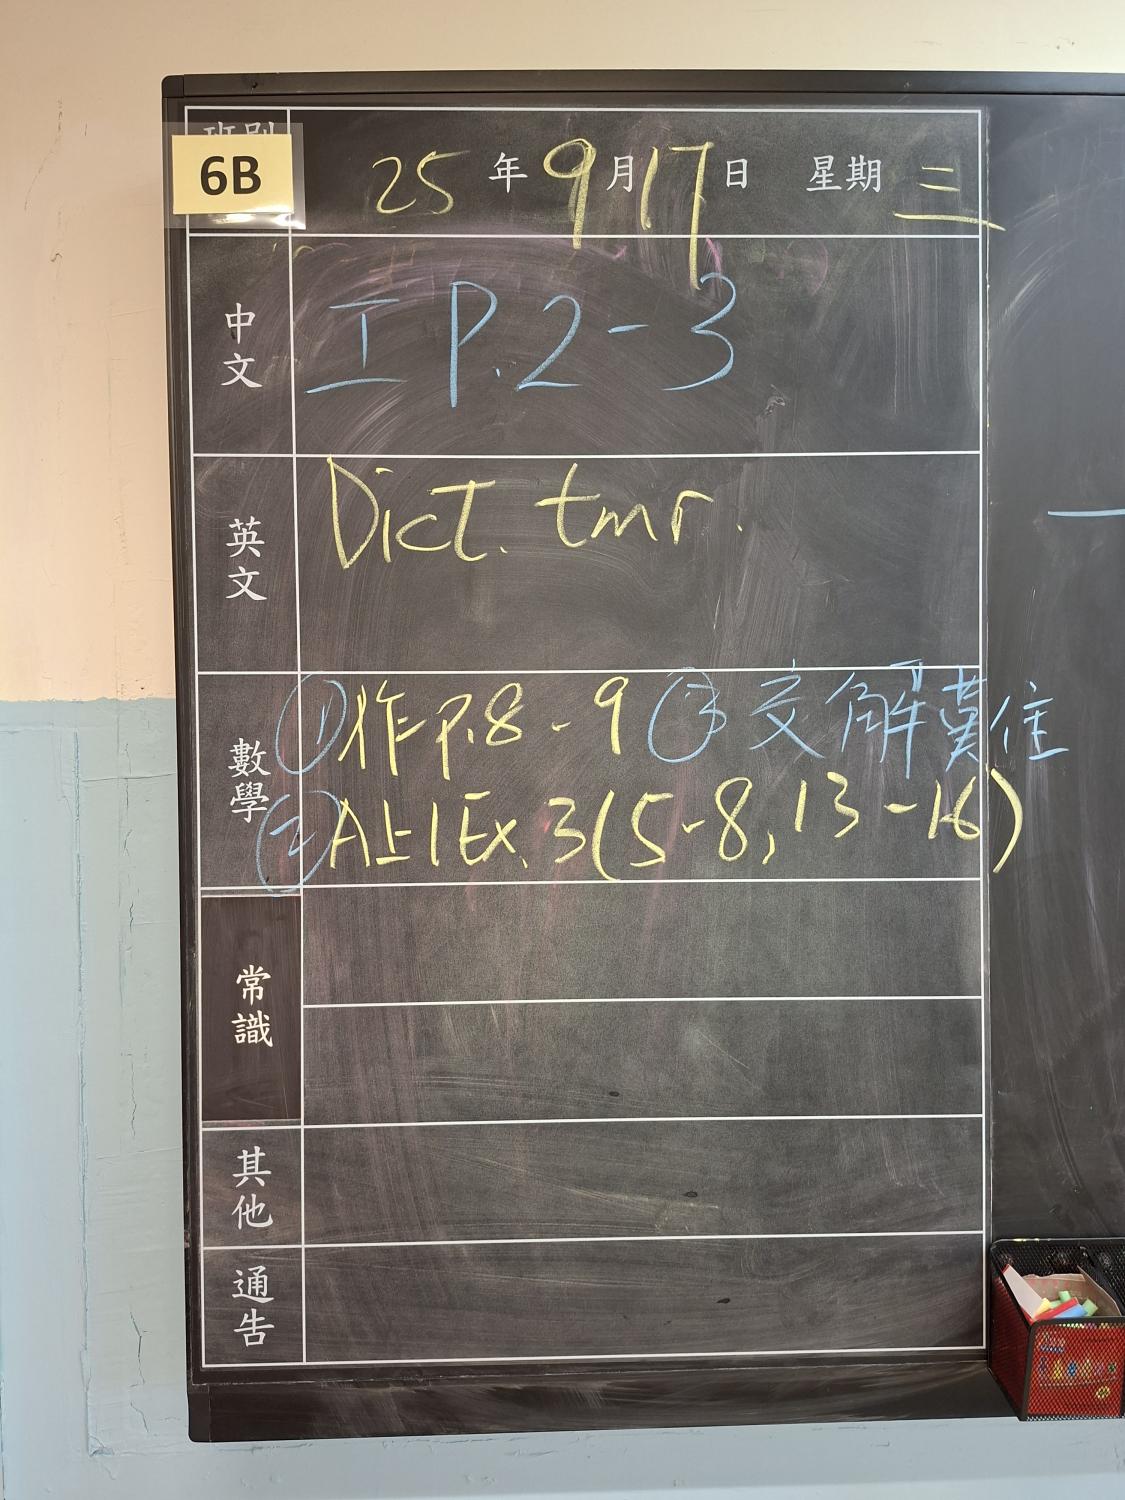 班別
6B
25年9月17日 星期三
中文
工 P.2-3
英文
Dict. tmr.
數學
①作P.8-9 ③交解難住
②A上1Ex.3(5-8,13-16)
常識
其他
通告